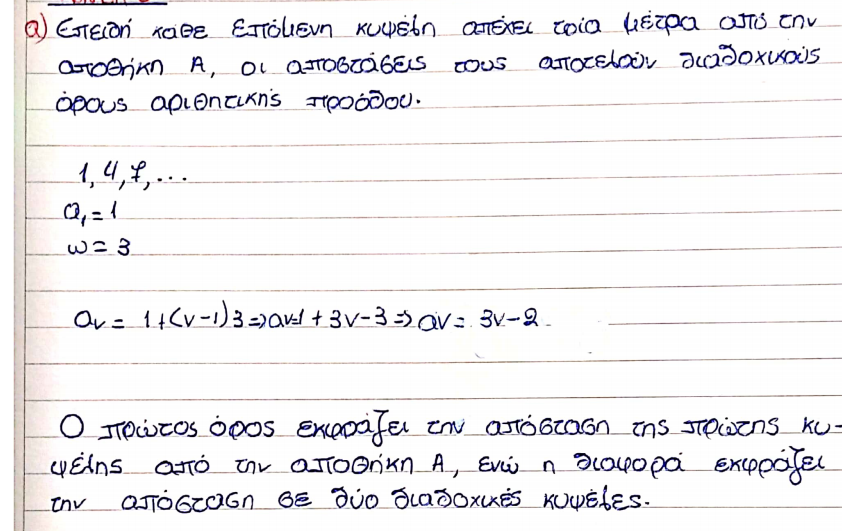 α) Επειδή κάθε επόμενη κυψέλη απέχει τρία μέτρα από την
αποθήκη Α, οι αποστάσεις τους αποτελούν διαδοχικούς
όρους αριθμητικής προόδου.
1, 4, 7, ...
α₁ = 1
ω = 3
αν = 1 + (ν-1)3 => αν=1 + 3ν-3 => αν = 3ν-2
Ο πρώτος όρος εκφράζει την απόσταση της πρώτης κυ-
ψέλης από την αποθήκη Α, ενώ η διαφορά εκφράζει
την απόσταση σε δύο διαδοχικές κυψέλες.